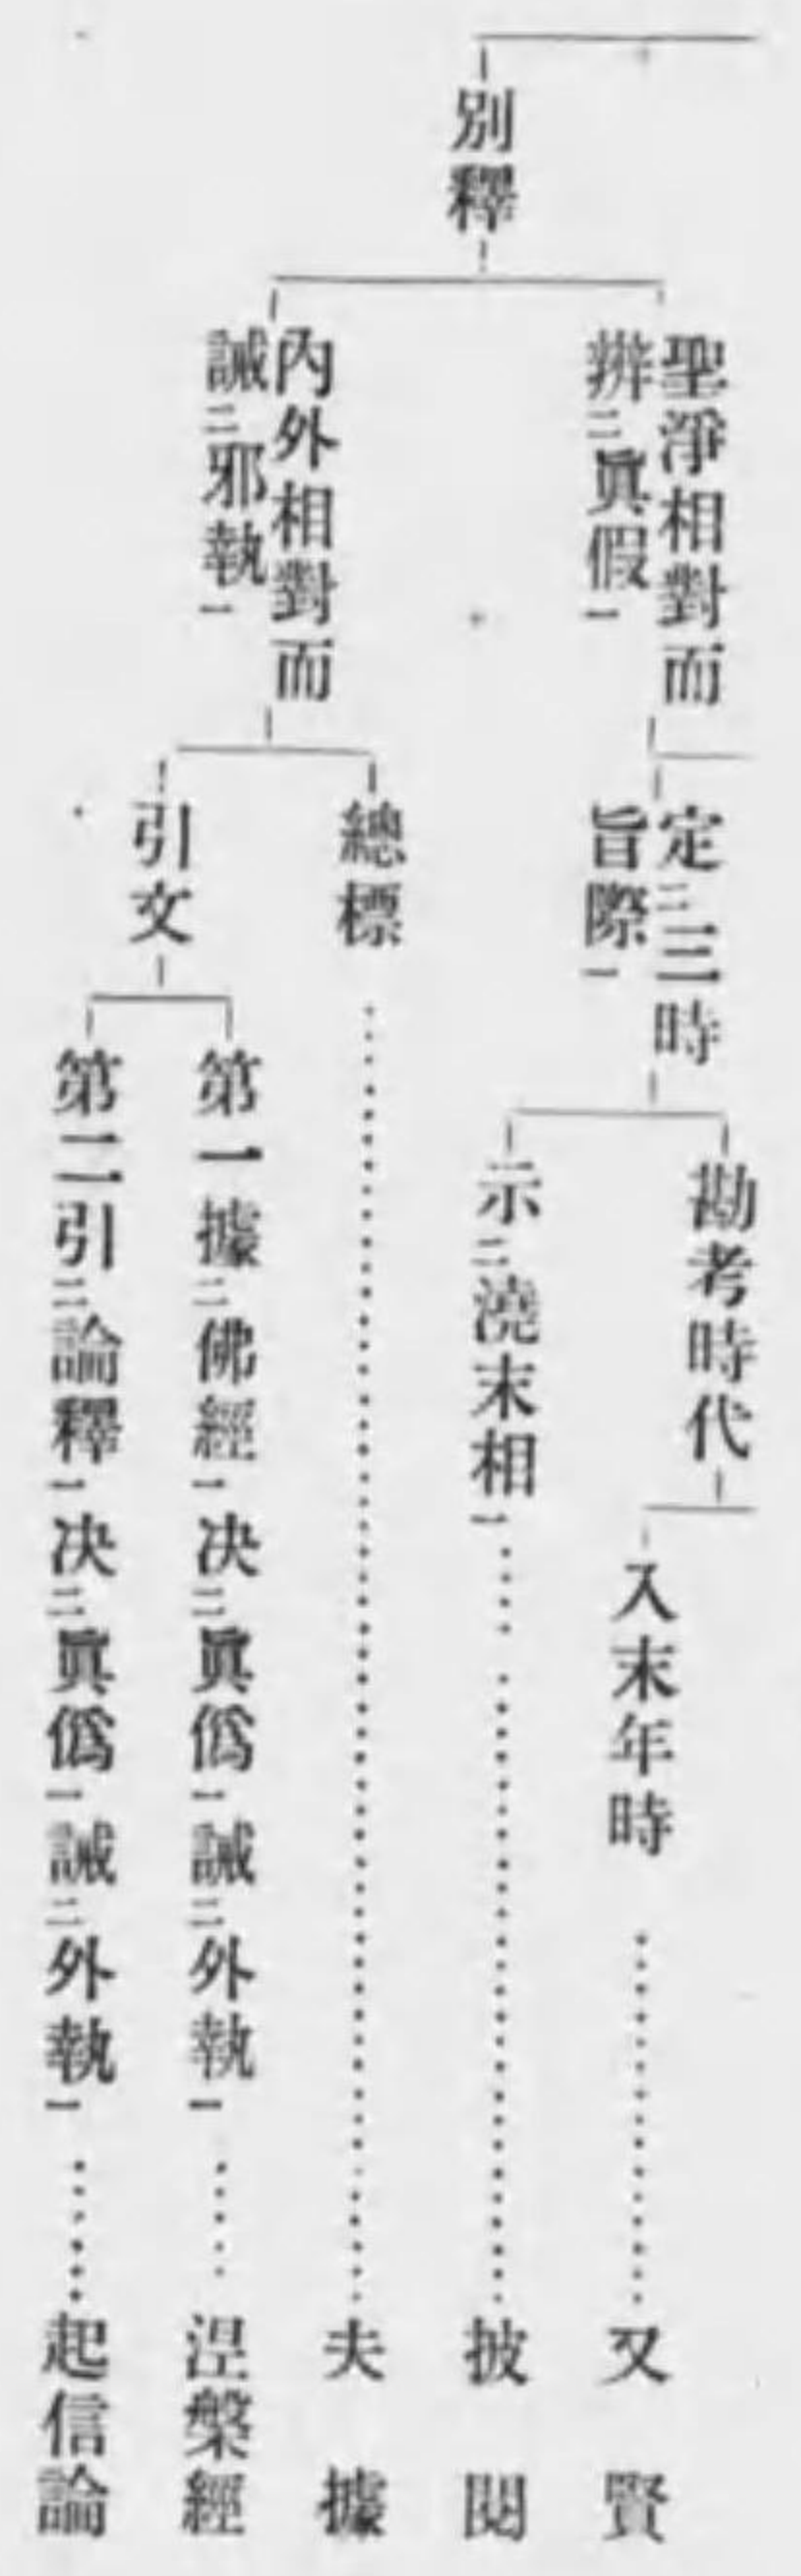 別釋
聖淨相對而
辨㆓眞假㆒
定㆓三時
旨際㆒
勘考時代
入末年時…………又賢
示㆓澆末相㆒…………披閱
內外相對而
誡㆓邪執㆒
總標…………夫據
引文
第一據㆓佛經㆒决㆓眞僞㆒誡㆓外執㆒……涅槃經
第二引㆓論釋㆒决㆓眞僞㆒誡㆓外執㆒……起信論